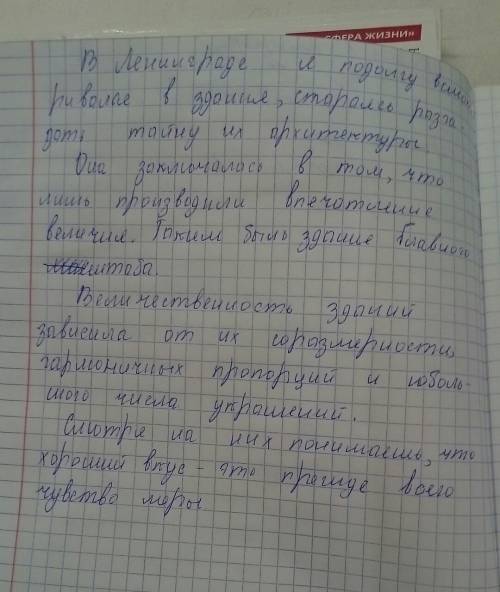 СФЕРА ЖИЗНИ»
В Ленинграде я подолгу всмат
ривался в здания, стараясь разга-
дать тайну их архитектуры
Она заключалась в том, что
лишь производили впечатление
величия. Таким было здание Главного
штаба.
Величественность зданий
зависила от их соразмерности,
гармоничных пропорций и неболь-
шого числа украшений.
Смотря на них понимаешь, что
хороший вкус - это прежде всего
чувство меры